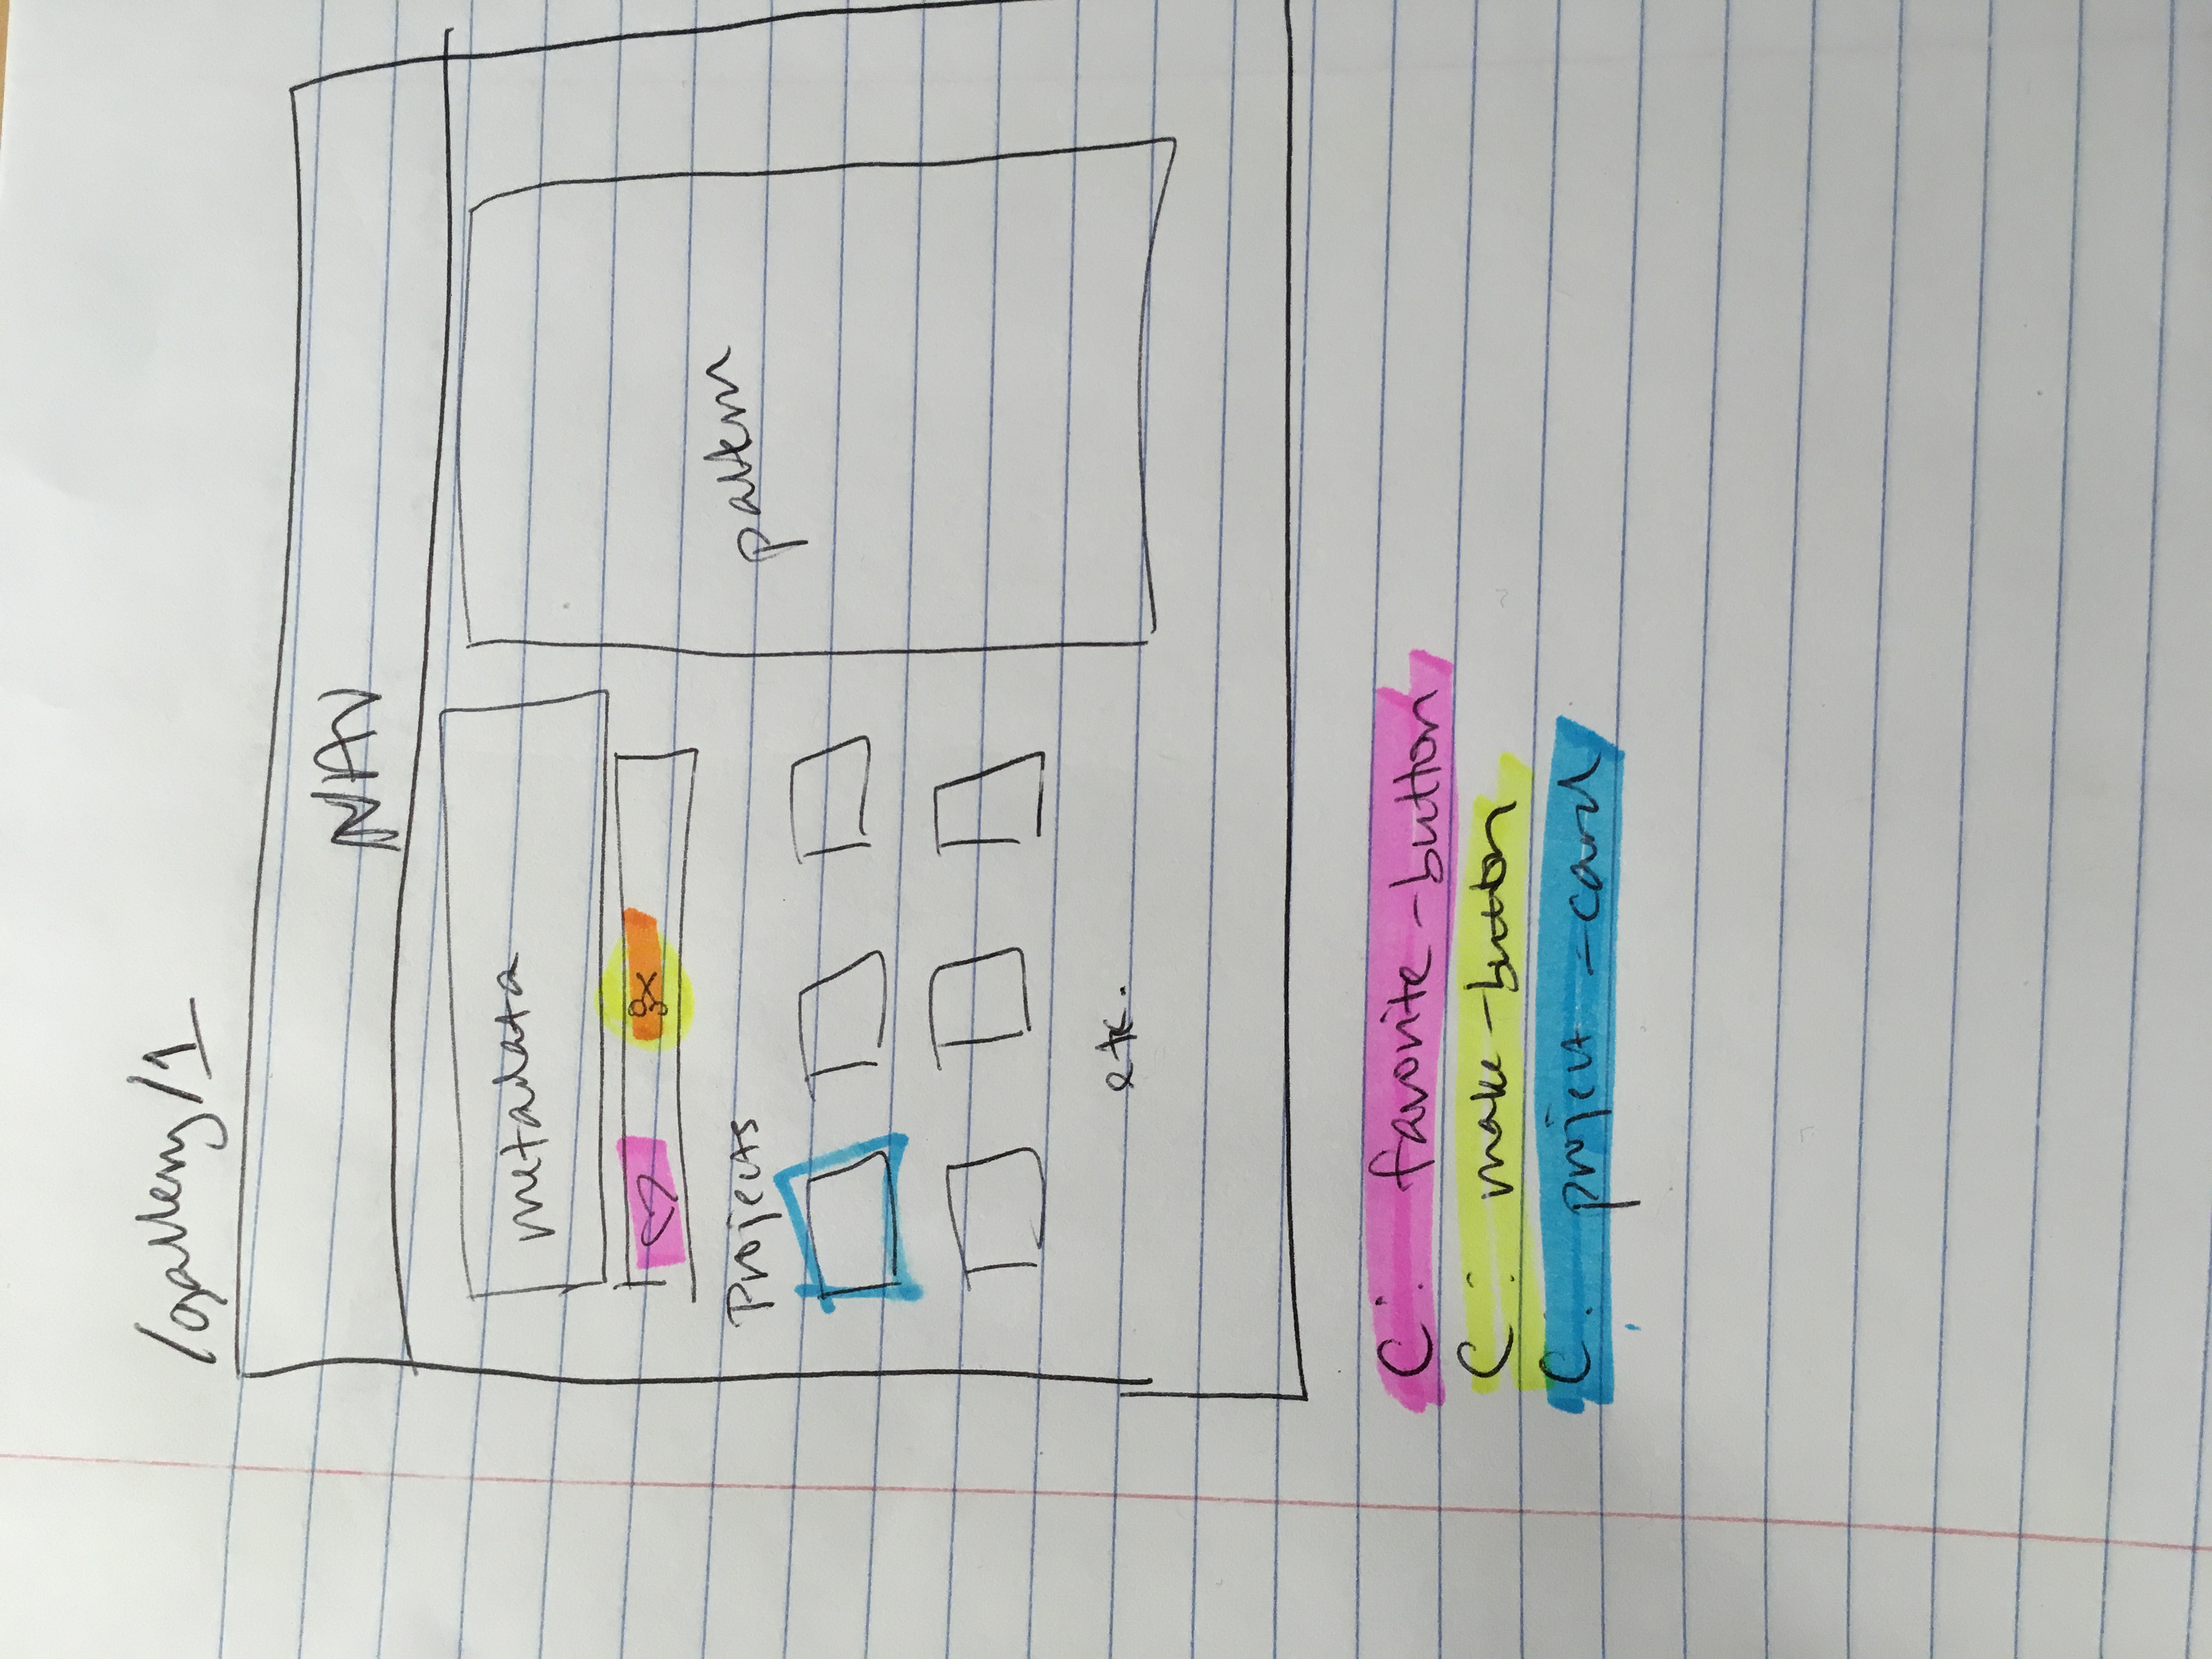 /gallery/1
NAV
metadata
Projects
pattern
etc.
C: favorite-button
C: make-button
C: project-card